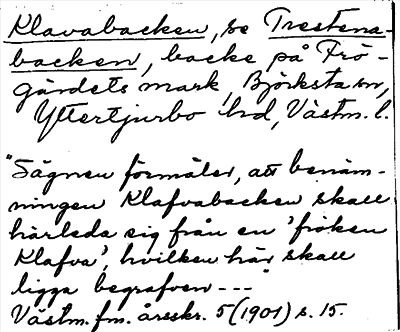 Klavabacken, se Trestena-
backen, backe på Frö-
gärdets mark, Björksta sn,
Yttertjurbo hd, Västm. l.
"Sägnen förmäler, att benäm-
ningen Klafvabacken skall
härleda sig från en 'fröken
Klafva', hvilken här skall
ligga begrafven ---"
Västm. fm. årsskr. 5 (1901) s. 15.